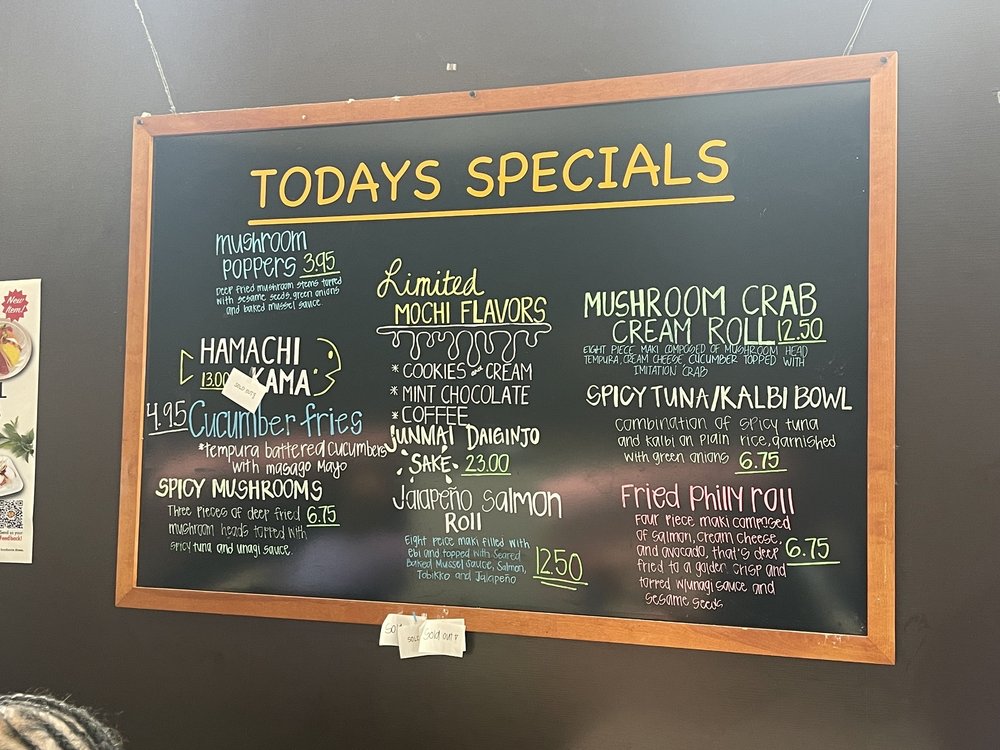 TODAYS SPECIALS
mushroom
poppers 3.95
Deep fried mushroom stems topped
with sesame seeds, green onions
and baked mussel sauce.
HAMACHI
13.00 KAMA
SOLD OUT
4.95 Cucumber fries
*tempura battered cucumbers
with masago mayo
SPICY MUSHROOMS
Three pieces of deep fried 6.75
mushroom heads topped with
spicy tuna and unagi sauce
Limited
MOCHI FLAVORS
* COOKIES and CREAM
* MINT CHOCOLATE
* COFFEE
JUNMAI DAIGINJO
SAKE 23.00
Jalapeño Salmon
Roll
Eight peice maki filled with
ebi and topped with Seared
Baked Mussel Sauce, Salmon,
Tobikko and Jalapeño
12.50
MUSHROOM CRAB
CREAM ROLL 12.50
EIGHT PIECE MAKI COMPOSED OF MUSHROOM HEAD
TEMPURA, CREAM CHEESE, CUCUMBER TOPPED WITH
IMITATION CRAB
SPICY TUNA/KALBI BOWL
combination of spicy tuna
and kalbi on plain rice, garnished
with green onions 6.75
Fried Philly roll
Four piece maki composed
of salmon, cream cheese,
and avocado, that's deep 6.75
fried to a golden crisp and
topped w/unagi sauce and
sesame seeds
SOLD
Sold out
New
Item!
Feedback!